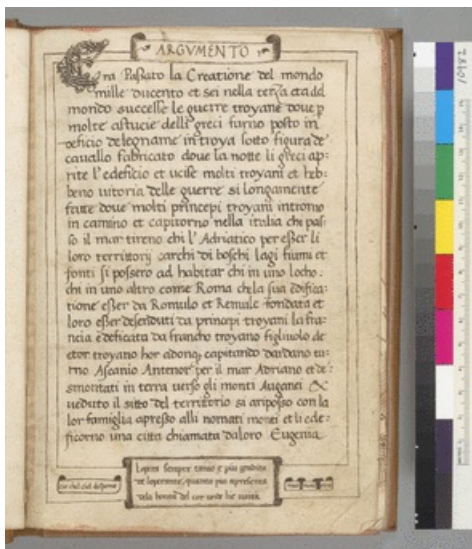 ARGVMENTO
Era Passato la Creatione del mondo
mille ducento et sei nella terza eta del
mondo successe le guerre troyane doue p
molte astucie delli greci furno posto in
oeficio de legname in troya sotto figura de
cauallo fabricato doue la notte li greci ap:
rite l'edeficio et ucise molti troyani et heb:
beno uitoria delle guerre si longamente
fatte doue molti principi troyani introrno
in camino et capitorno nella italia chi pas:
so il mar tireno chi l'Adriatico per esser li
loro territorij carchi di boschi lagi fiumi et
fonti si possero ad habitar chi in uno locho
chi in uno altro come Roma che la sua edifica:
tione esser da Romulo et Remule fondata et
loro esser descenduti da principi troyani la fra:
ncia edeficata da francho troyano figliuolo de
etor troyano hor adonq capitando dardano tu:
rno Ascanio Antenor per il mar Adriano et de:
smontati in terra uerso gli monti Auganei &
ueduto il sitto del territorio si ariposso con la
lor famiglia apresso alli nomati monti et li ede:
ficorno una citta chiamata da loro Eugenia
lopera sempre tanto e piu gradita
et loperante, quanto piu apresenta
dela bontà del cor
10982